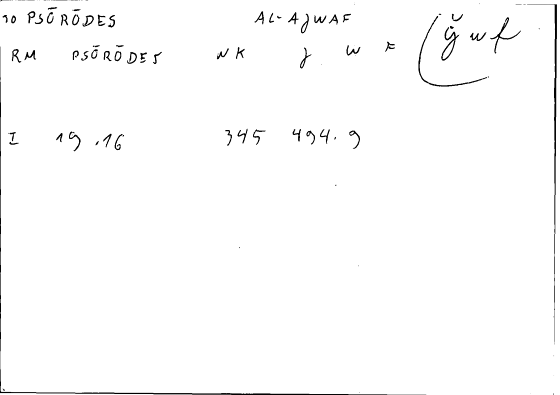 10 PSŌRŌDES AL-AJWAF
RM PSŌRŌDES NK J W F (ǧwf
I 19.16 345 494.9